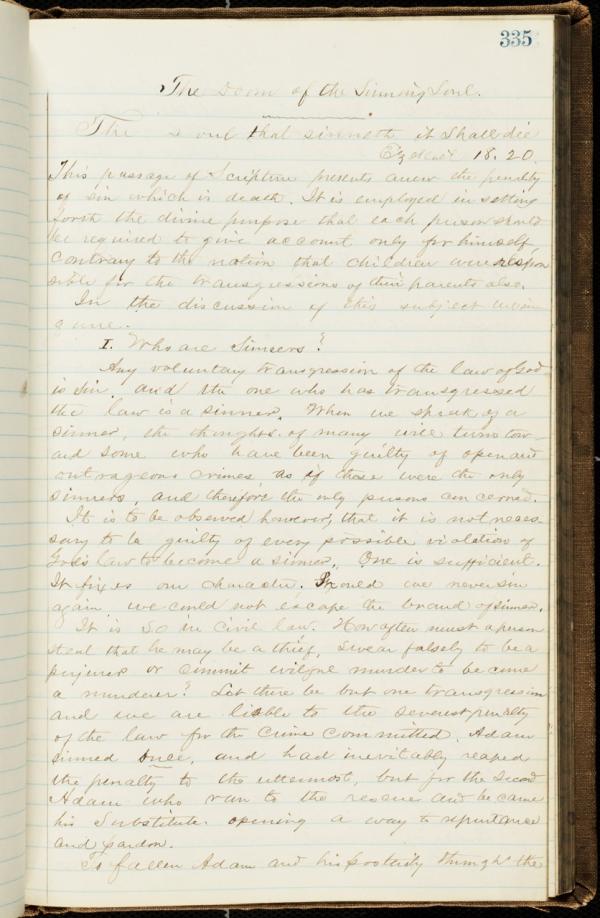 335
The Doom of the Sinning Soul.
The soul that sinneth it shall die
Ezekiel 18. 20.
This passage of Scripture presents anew the penalty
of sin which is death. It is employed in setting
forth the divine purpose that each person should
be required to give account only for himself,
contrary to the notion that children were respon
sible for the transgressions of their parents also.
In the discussion of this subject
I. Who are Sinners?
Any voluntary transgression of the law of God
is sin, and the one who has transgressed
the law is a sinner. When we speak of a
sinner, the thoughts of many will turn tow-
ard some who have been guilty of open and
outrageous crimes, as if these were the only
sinners, and therefore the only persons concerned.
It is to be observed however, that it is not neces-
sary to be guilty of every possible violation of
God's law to become a sinner. One is sufficient.
It fixes our character. Should we never sin
again we could not escape the brand of sinner.
It is so in civil law. How often must a person
steal that he may be a thief, swear falsely to be a
perjurer or commit murder to become
a murderer? Let there be but one transgression
and we are liable to the severest penalty
of the law for the crime committed. Adam
sinned once, and had inevitably reaped
the penalty to the uttermost, but for the second
Adam who ran to the rescue and became
his substitute opening a way to repentance
and pardon.
To fallen Adam and his posterity through the